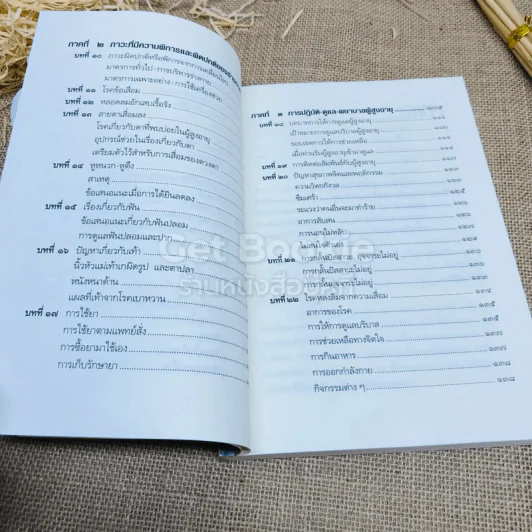 ภาคที่ ๒ ภาวะที่มีความพิการและผิดปกติของร่างกาย
บทที่ ๑๐ ภาวะผิดปกติหรือพิการจากการเคลื่อนไหว
มาตรการทั่วไป : การบริหารร่างกาย
มาตรการเฉพาะอย่าง : การใช้เครื่องช่วย
บทที่ ๑๑ โรคข้อเสื่อม
บทที่ ๑๒ หลอดลมอักเสบเรื้อรัง
บทที่ ๑๓ สายตาเสื่อมลง
โรคเกี่ยวกับตาที่พบบ่อยในผู้สูงอายุ
อุปกรณ์ช่วยในเรื่องเกี่ยวกับตา
เตรียมตัวไว้สำหรับการเสื่อมของดวงตา
บทที่ ๑๔ หูหนวก-หูตึง
สาเหตุ
ข้อเสนอแนะเมื่อการได้ยินลดลง
บทที่ ๑๕ เรื่องเกี่ยวกับฟัน
ข้อเสนอแนะเกี่ยวกับฟันปลอม
การดูแลฟันปลอมและปาก
บทที่ ๑๖ ปัญหาเกี่ยวกับเท้า
นิ้วหัวแม่เท้าเกผิดรูป และตาปลา
หนังหนาด้าน
แผลที่เท้าจากโรคเบาหวาน
บทที่ ๑๗ การใช้ยา
การใช้ยาตามแพทย์สั่ง
การซื้อยามาใช้เอง
การเก็บรักษายา
ภาคที่ ๓ การปฏิบัติ-ดูแล-พยาบาลผู้สูงอายุ
บทที่ ๑๘ บทบาทการให้การดูแลผู้สูงอายุ
เป้าหมายการดูแลบริบาลผู้สูงอายุ
ขอบเขตการให้การช่วยเหลือ
เมื่อท่านรับผู้สูงอายุเข้ามาดูแล
บทที่ ๑๙ การติดต่อสัมพันธ์กับผู้สูงอายุ
บทที่ ๒๐ ปัญหาสุขภาพจิตและพฤติกรรม
ความวิตกกังวล
ซึมเศร้า ๑๒๕
ระแวงว่าคนอื่นจะมาทำร้าย
อาการสับสน
การนอนไม่หลับ
ไม่สนใจตัวเอง
บทที่ ๒๑ การกลั้นปัสสาวะ อุจจาระไม่อยู่ ๑๓๐
การกลั้นปัสสาวะไม่อยู่
การกลั้นอุจจาระไม่อยู่
บทที่ ๒๒ โรคหลงลืมจากความเสื่อม ๑๓๕
อาการของโรค
การให้การดูแลบริบาล
การช่วยเหลือทางจิตใจ
การกินอาหาร ๑๓๗
การออกกำลังกาย ๑๓๘
กิจกรรมต่าง ๆ ๑๓๘
Get Bookie
ร้านหนังสือ